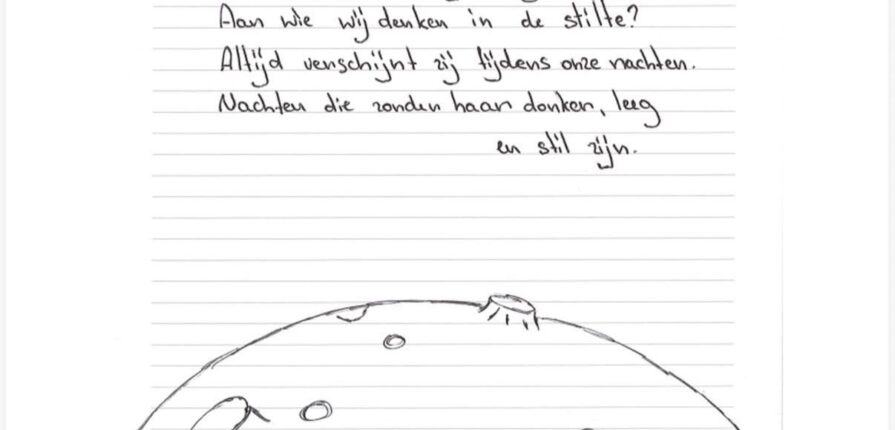 Aan wie wij denken in de stilte?
Altijd verschijnt zij tijdens onze nachten.
Nachten die zonder haar donker, leeg
en stil zijn.